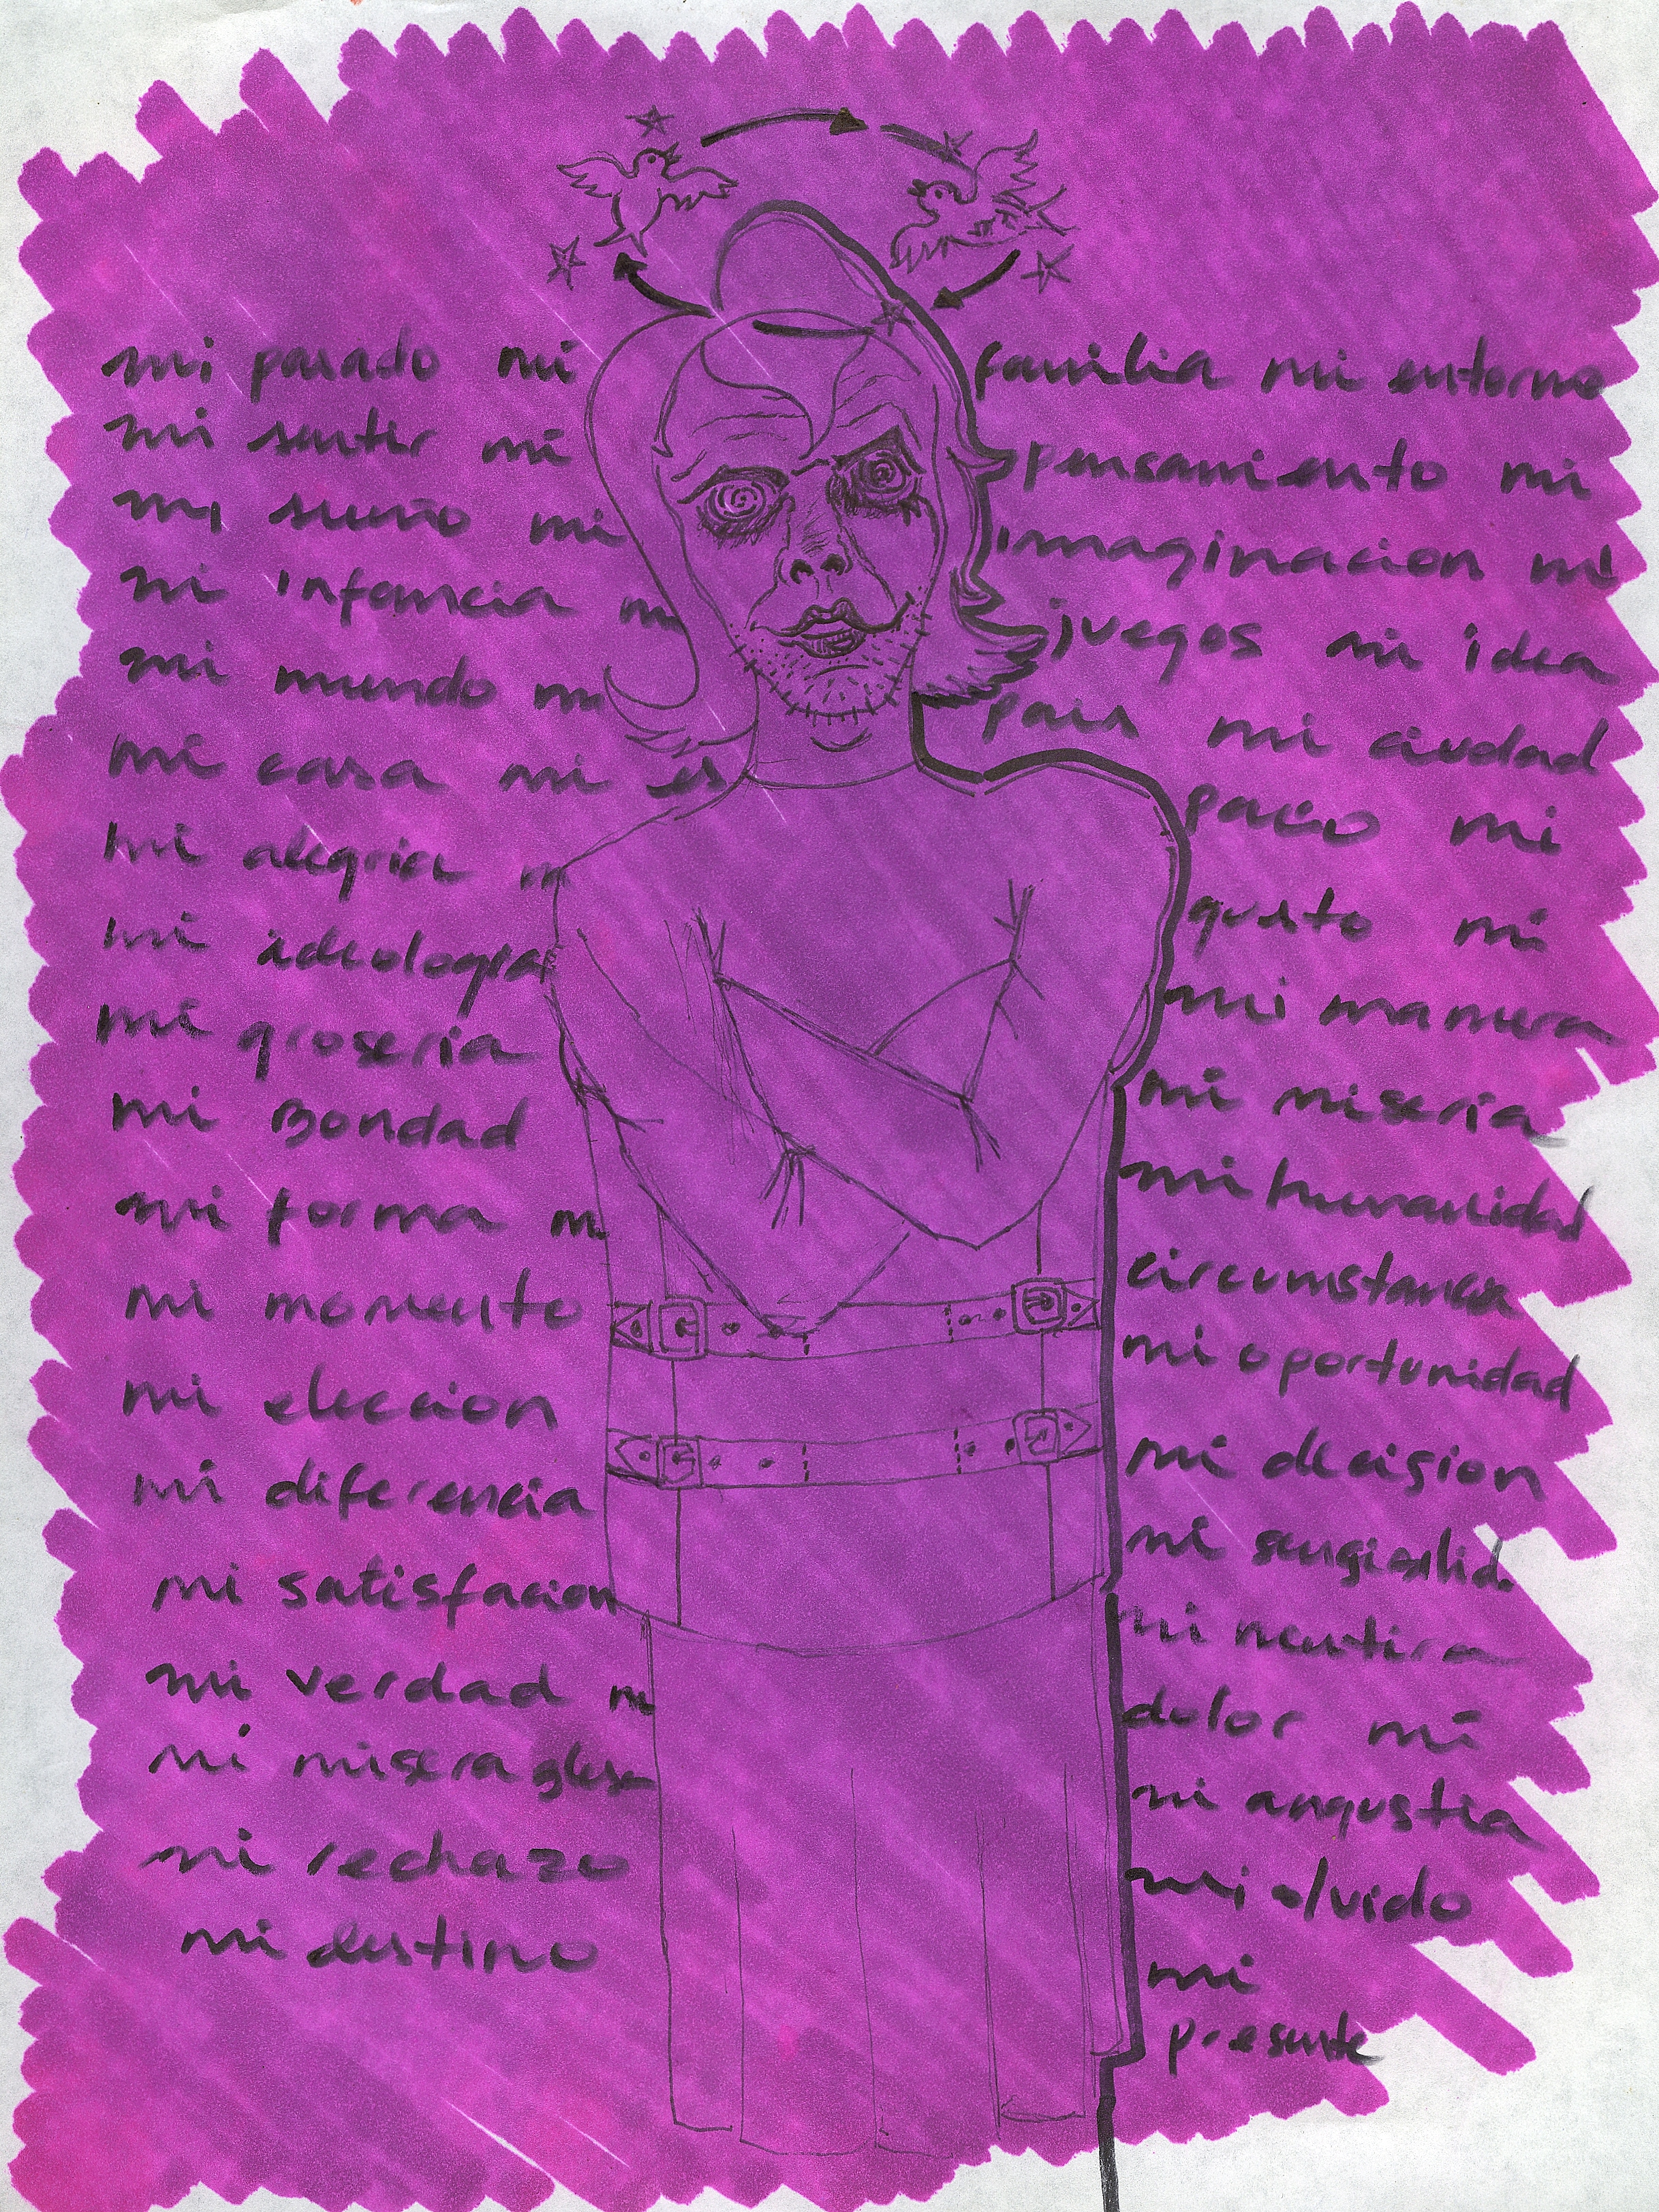 mi pasado mi familia mi entorno
mi sentir mi pensamiento mi
mi sueño mi imaginacion mi
mi infancia m juegos mi idea
mi mundo m pais mi ciudad
mi casa mi es pacio mi
mi alegria m gusto mi
mi ideologia mi manera
mi groseria mi miseria
mi Bondad mi humanidad
mi forma m circumstancia
mi momento mi oportunidad
mi eleccion mi decision
mi diferencia mi
mi satisfacion mi mentira
mi verdad m dolor mi
mi mi angustia
mi rechazo mi olvido
mi destino mi
presente